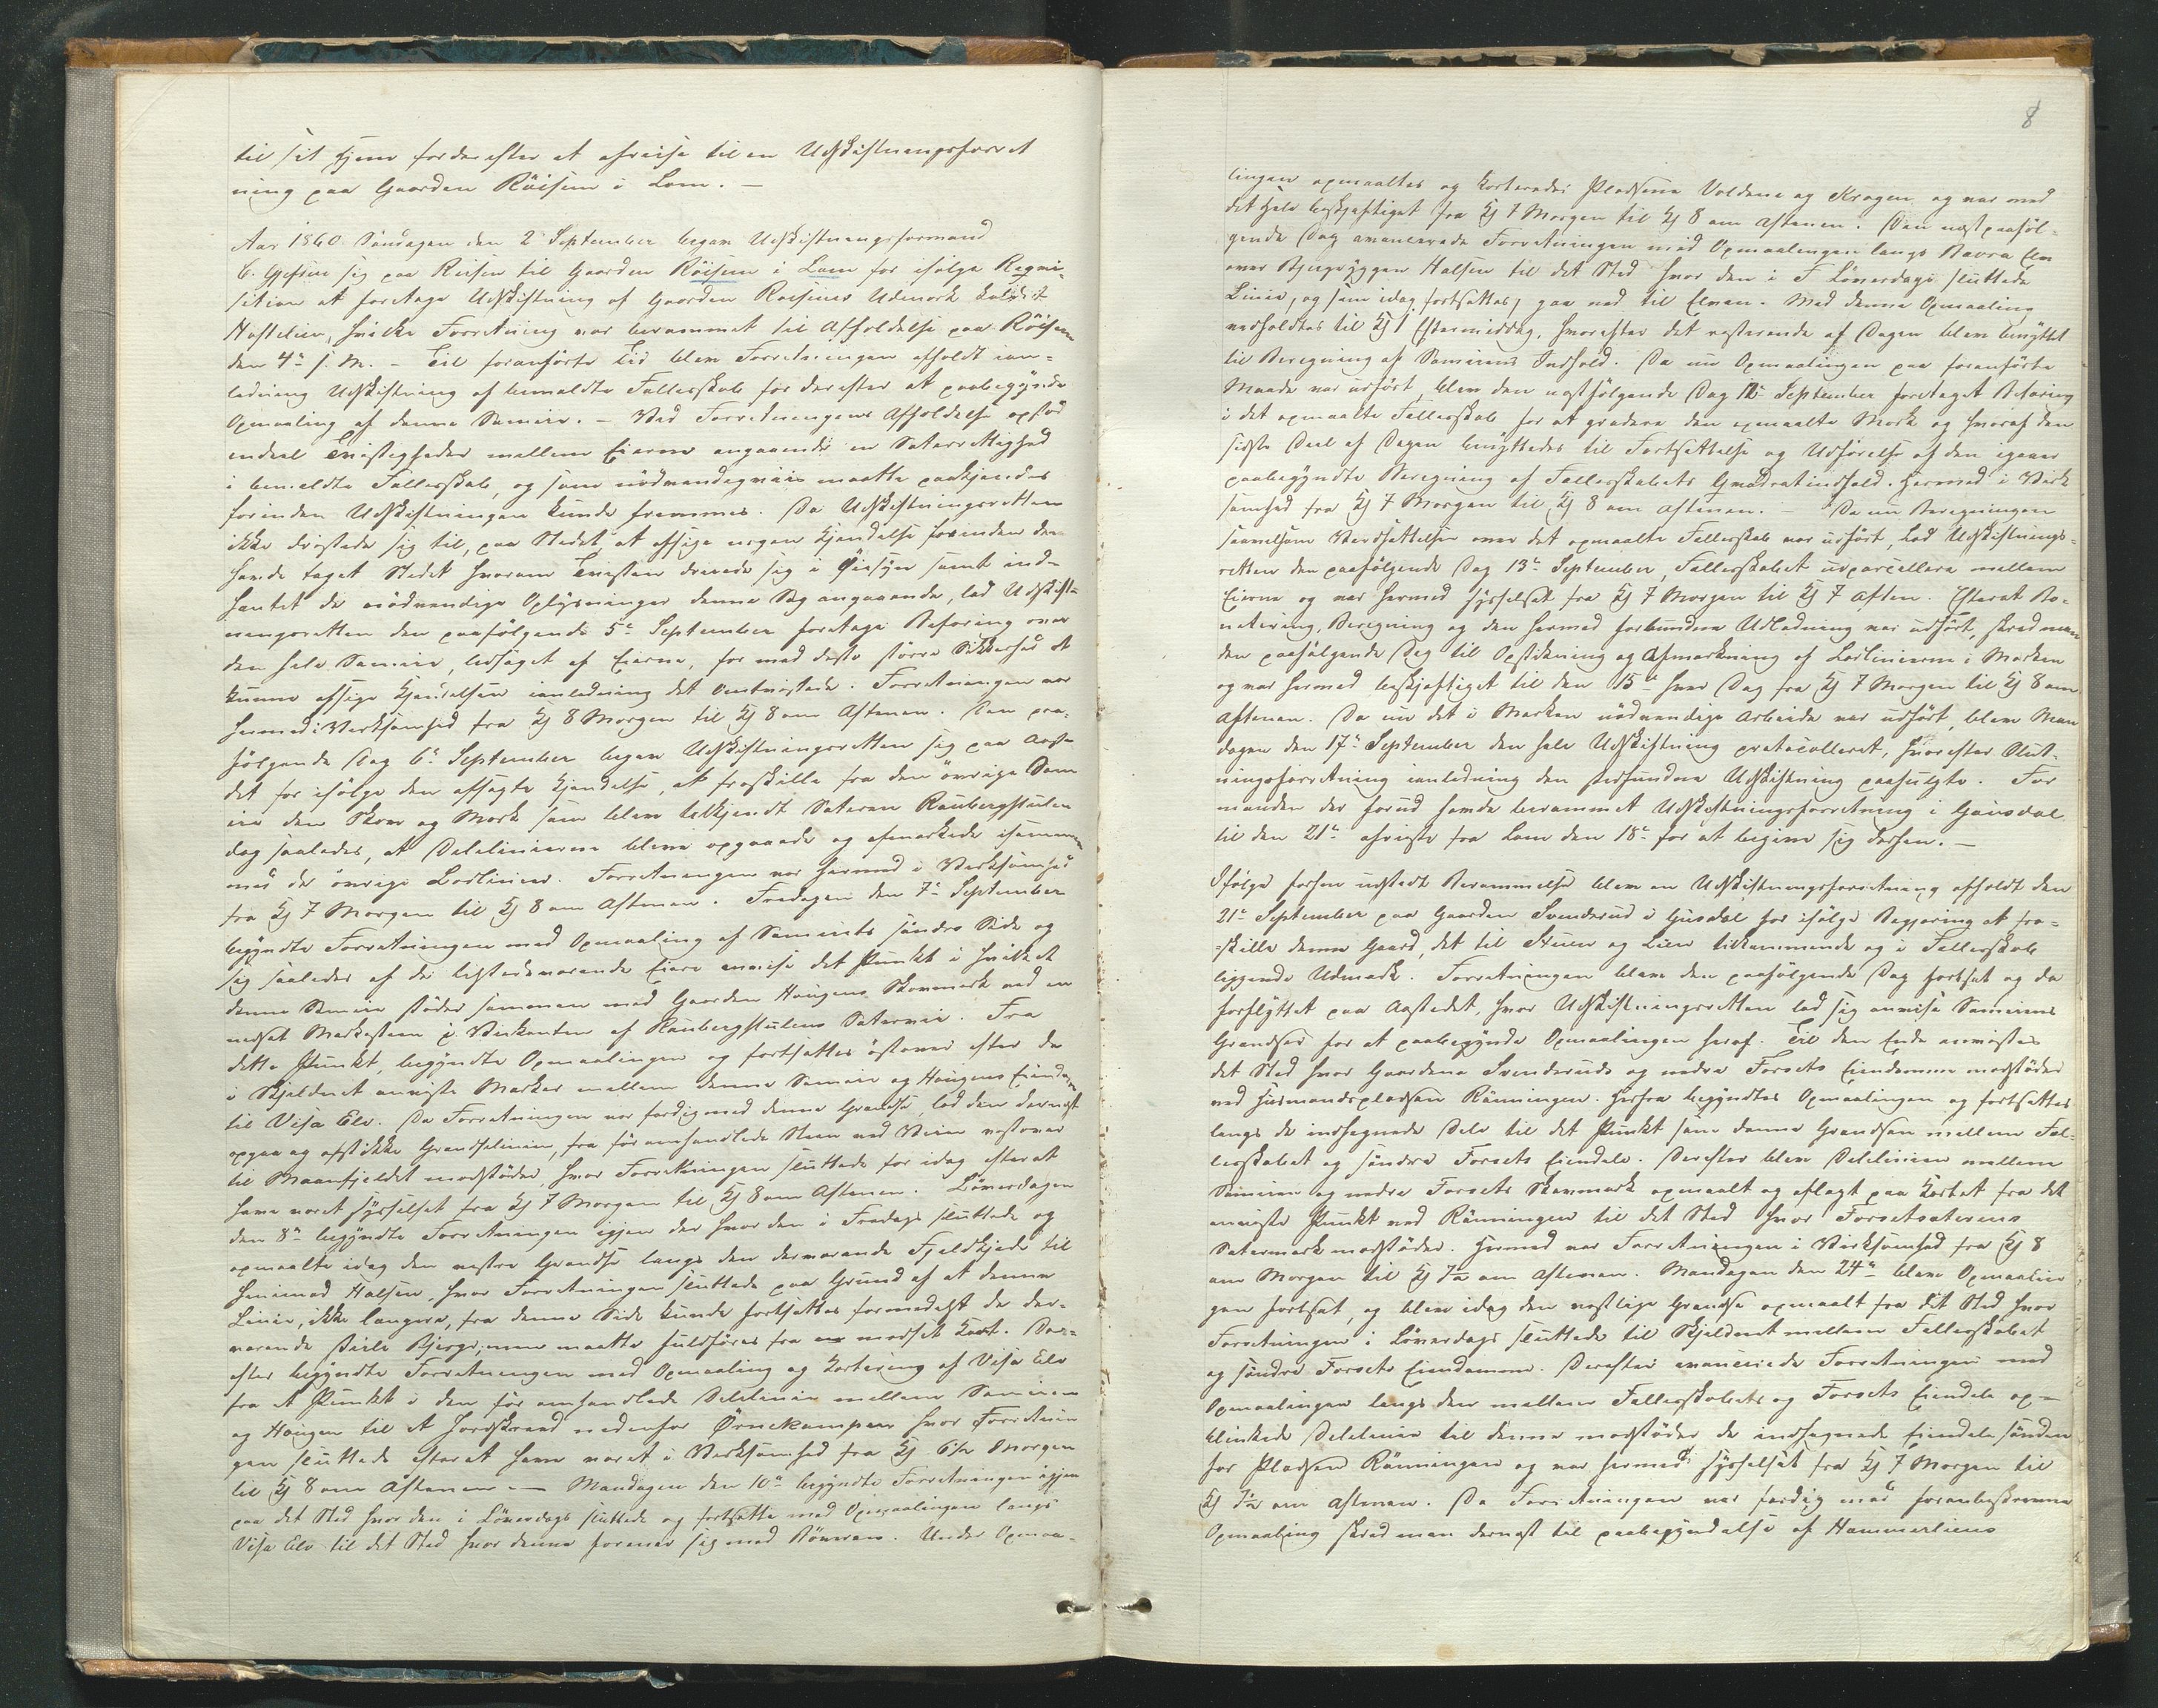 til sit Hjem for derefter at afreise til en Udskiftningsforret
ning paa Gaarden Röisum i Lom. —
Aar 1860 Söndagen den 2 September begav Udskiftningsformand
C. Gjessing sig paa Reisen til Gaarden Röisum i Lom for ifölge Reqvi-
sition at foretage Udskiftning af Gaarden Roisums Udmark kaldet
hvilke Forretning var berammet til Afholdelse paa Röisum
den 4de s. M. – Til foranförte Tid blev Forretningen afholdt ian-
ledning Udskiftning af bemeldte Fællesskab for derefter at paabegynde
Opmaaling af denne Sameie. – Ved Forretningens Afholdelse opstod
endeel Tvistigheder mellem Eierne angaaende en Sæterrettighed
i bemeldte Fællesskab, og som nödvendigviis maatte paakjendes
forinden Udskiftningen kunde fremmes. Da Udskiftningsretten
ikke dristede sig til, paa Stedet at afsige nogen Kjendelse forinden den
havde taget Stedet hvorom Tvisten dreiede sig i Öiesyn samt ind-
hentet de nödvendige Oplysninger denne Sag angaaende, lod Udskift-
ningsretten den paafölgende 5te September foretage Befaring over
den hele Sameie, ledsaget af Eierne, for med desto större Sikkerhed at
kunne afsige Kjendelsen ianledning det Omtvistede. Forretningen var
hermed i Virksomhed fra Kl 8 Morgen til Kl 8 om Aftenen. Den paa-
fölgende Dag 6te September begav Udskiftningsretten sig paa Aaste
det for ifölge den afsagte Kjendelse, at fraskille fra den övrige Sam
eie den Skov og Mark som blev tilkjendt Sæteren Raubergstulen
dog saaledes, at Delelinierne bleve opgaaede og afmærkede isammen
med de övrige Lodlinier. Forretningen var hermed i Virksomhed
fra Kl 7 Morgen til Kl 8 om Aftenen. Fredagen den 7de September
begyndte Forretningen med Opmaaling af Sameiets söndre Side og
sig saaledes af de tilstedeværende Eiere anvise det Punkt i hvilket
denne Sameie stöder sammen med Gaarden Haugens Skovmark ved en
nedsat Markesteen i Veikanten af Raubergstulens Sæterveie. Fra
dette Punkt, begyndte Opmaalingen og fortsattes östover efter de
i Skjeldnet anviste Mærker mellem denne Sameie og Haugens Eiendom
til Visa Elv. Da Forretningen var færdig med denne Grændse, lod den dernæst
opgaa og afstikke Grændselinien, fra för omhandlede Steen ved Veien vestover
til Maanfjeldet modstöder, hvor Forretningen sluttede for idag efterat
have været sysselsat fra Kl 7 Morgen til Kl 8 om Aftenen. Löverdagen
den 8de begyndte Forretningen igjen der hvor den i Fredags sluttede og
opmaalte idag den vestre Grændse langs den derværende Fjeldkjede til
henimod Halsen, hvor Forretningen sluttede paa Grund af at denne
Linie, ikke længere, fra denne Side kunde fortsættes formedelst de der-
værende steile Bjerge, men maatte fuldföres fra modsat Kant. Der-
efter begyndte Forretningen med Opmaaling og Kartering af Visa Elv
fra et Punkt i den för omhandlede Delelinie mellem Sameien
og Haugen til et Jordskred nedenfor Örnekampen hvor Forretnin
gen sluttede efterat have været i Virksomhed fra Kl 6½ Morgen
til Kl 8 om Aftenen. — Mandagen den 10de begyndte Forretningen igjen
paa det Sted hvor den i Löverdags sluttede og fortsatte med Opmaalingen langs
Visa Elv til det Sted hvor denne forener sig med Under Opmaa-
8
lingen opmaaltes og karteredes Pladsene Voldene og Kragen og var med
det Hele beskjæftiget fra Kl 7 Morgen til Kl 8 om Aftenen. Den næstpaaföl-
gende Dag avancerede Forretningen med Opmaalingen langs Bævra Elv
over Bjergryggen Halsen til det Sted hvor den i F Löverdags sluttede
Linie, og som idag fortsattes, gaa ned til Elven. Med denne Opmaaling
vedholdtes til Kl 1 Eftermiddag, hvorefter det resterende af Dagen blev benyttet
til Beregning af Sameiens Indhold. Da nu Opmaalingen paa foranförte
Maade var udfört, blev den næstfölgende Dag 12te September foretaget Befaring
i det opmaalte Fællesskab for at gradere den opmaalte Mark og hvoraf den
sidste Deel af Dagen benyttedes til Fortsættelse og Udförelse af den igaar
paabegyndte Beregning af Fællesskabets Qvadratindhold. Hermed i Virk
somhed fra Kl 7 Morgen til Kl 8 om Aftenen. — Da nu Beregningen
saavelsom Værdsættelsen over det opmaalte Fællesskab var udfört, lod Udskiftnings-
retten den paafölgende Dag 13de September, Fællesskabet udparcellere mellem
Eierne og var hermed sysselsat fra Kl 7 Morgen til Kl 7 Aften. Efterat Bo-
nitering, Beregning og den hermed forbundne Udlodning var udfört, skred man
den paafölgende Dag til Opstikning og Afmærkning af Lodlinierne i Marken
og var hermed beskjæftiget til den 15de hver Dag fra Kl 7 Morgen til Kl 8 om
Aftenen. Da nu det i Marken nödvendige Arbeide var udfört, blev Man
dagen den 17de September den hele Udskiftning protocolleret, hvorefter Slut-
ningsforretning ianledning den stedfundne Udskiftning paafulgte. For
manden der forud havde berammet Udskiftningsforretning i Gausdal
til den 21de afreiste fra Lom den 18de for at begive sig derhen. —
Ifölge forhen udstedt Berammelse blev en Udskiftningsforretning afholdt den
21de September paa Gaarden Svenderud i Gusdal for ifölge Begjæring at fra-
skille denne Gaard, det til Steen og Lien tilkommende og i Fællesskab
liggende Udmark. Forretningen blev den paafölgende Dag fortsat og da
forflyttet paa Aastedet, hvor Udskiftningsretten lod sig anvise Sameiens
Grændser for at paabegynde Opmaalingen heraf. Til den Ende anvistes
det Sted hvor Gaardene Svenderuds og nedre Forsets Eiendomme modstöder
ved Husmandspladsen Rönningen. Herfra begyndtes Opmaalingen og fortsattes
langs de indhegnede Dele til det Punkt som danner Grændsen mellem Fæl-
lesskabet og söndre Forsets Eiendele. Derefter blev Delelinien mellem
Sameien og nedre Forsets Skovmark opmaalt og aflagt paa Kartet fra det
anviste Punkt ved Rönningen til det Sted hvor Forsetsæterens
Sætermark modstöder. Hermed var Forretningen i Virksomhed fra Kl 8
om Morgen til Kl 7½ om Aftenen. Mandagen den 24de blev Opmaalin
gen fortsat, og blev idag den vestlige Grændse opmaalt fra det Sted hvor
Forretningen i Löverdags sluttede til Skjeldnet mellem Fællesskabet
og söndre Forsets Eiendomme. Derefter avancerede Forretningen med
Opmaalingen langs den mellem Fællesskabets og Forsets Eiendele op-
blinkede Delelinie til denne modstöder de indhegnede Eiendele sönden
for Pladsen Rönningen og var hermed sysselsat fra Kl 7 Morgen til
Kl 7½ om Aftenen. Da Forretningen var færdig med foranbeskrevne
Opmaaling skred man dernæst til paabegyndelse af Hammerliens